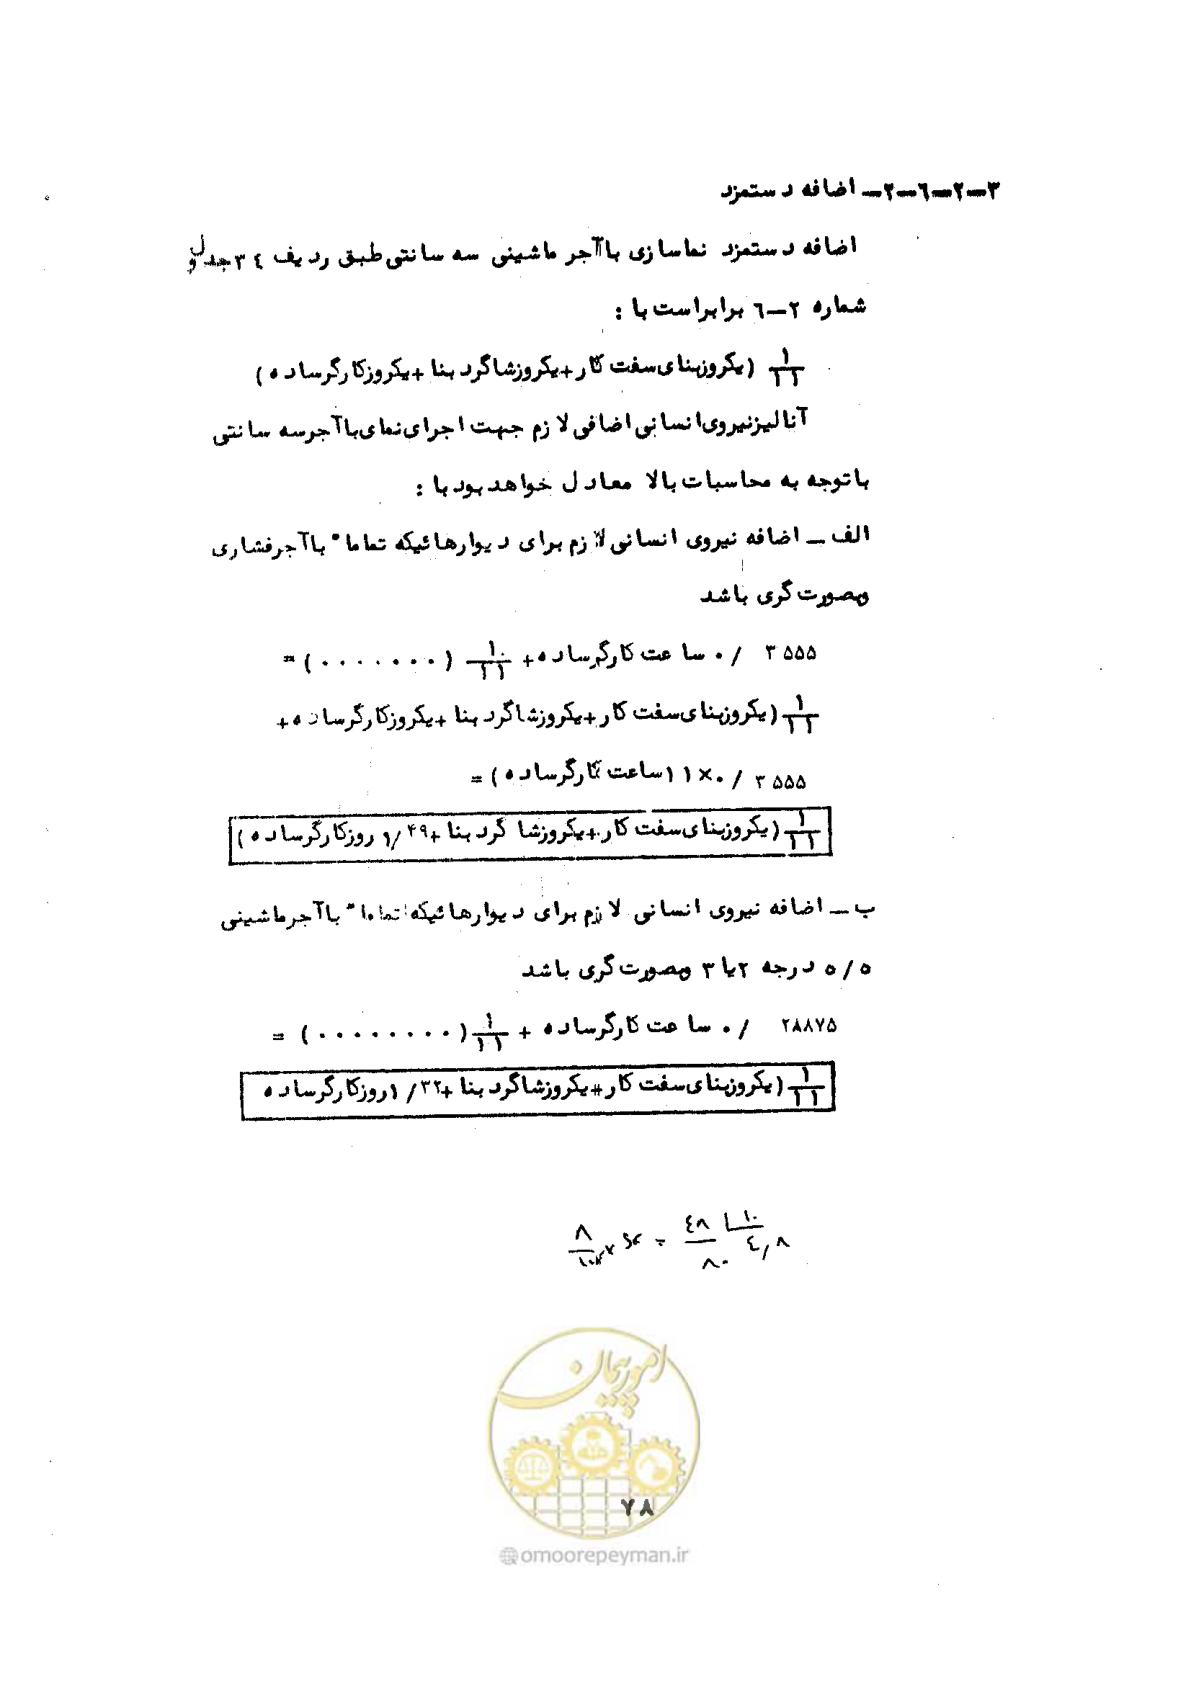 ۳-۲-۶-۲- اضافه دستمزد
اضافه دستمزد نماسازی باآجر ماشینی سه سانتی طبق ردیف ۳۴ جدول
شماره ۲-۶ برابراست با :
۱/۱۱ (یکروزبنای سفت کار+یکروزشاگرد بنا +یکروزکارگرساده)
آنالیزنیروی انسانی اضافی لازم جهت اجرای نمای باآجرسه سانتی
باتوجه به محاسبات بالا معادل خواهد بود با :
الف - اضافه نیروی انسانی لازم برای دیوارهائیکه تماما" باآجرفشاری
وبصورت گری باشد
۰/۳۵۵۵ ساعت کارگرساده+ ۱۰/۱۱ (.......) =
۱/۱۱ (یکروزبنای سفت کار+یکروزشاگرد بنا +یکروزکارگرساده+
۰/۳۵۵۵×۱۱ ساعت کارگرساده) =
۱/۱۱ (یکروزبنای سفت کار+یکروزشا گرد بنا +۱/۴۹ روزکارگرساده)
ب - اضافه نیروی انسانی لازم برای دیوارهائیکه تماما" باآجرماشینی
۵/۵ درجه ۲یا ۳ وبصورت گری باشد
۰/۲۸۸۷۵ ساعت کارگرساده + ۱/۱۱ (........) =
۱/۱۱ (یکروزبنای سفت کار+یکروزشاگرد بنا +۱/۳۲ روزکارگرساده
۴۸ ۱۰
۸۰ ۴,۸
امور پیمان
۷۸
@omoorepeyman.ir